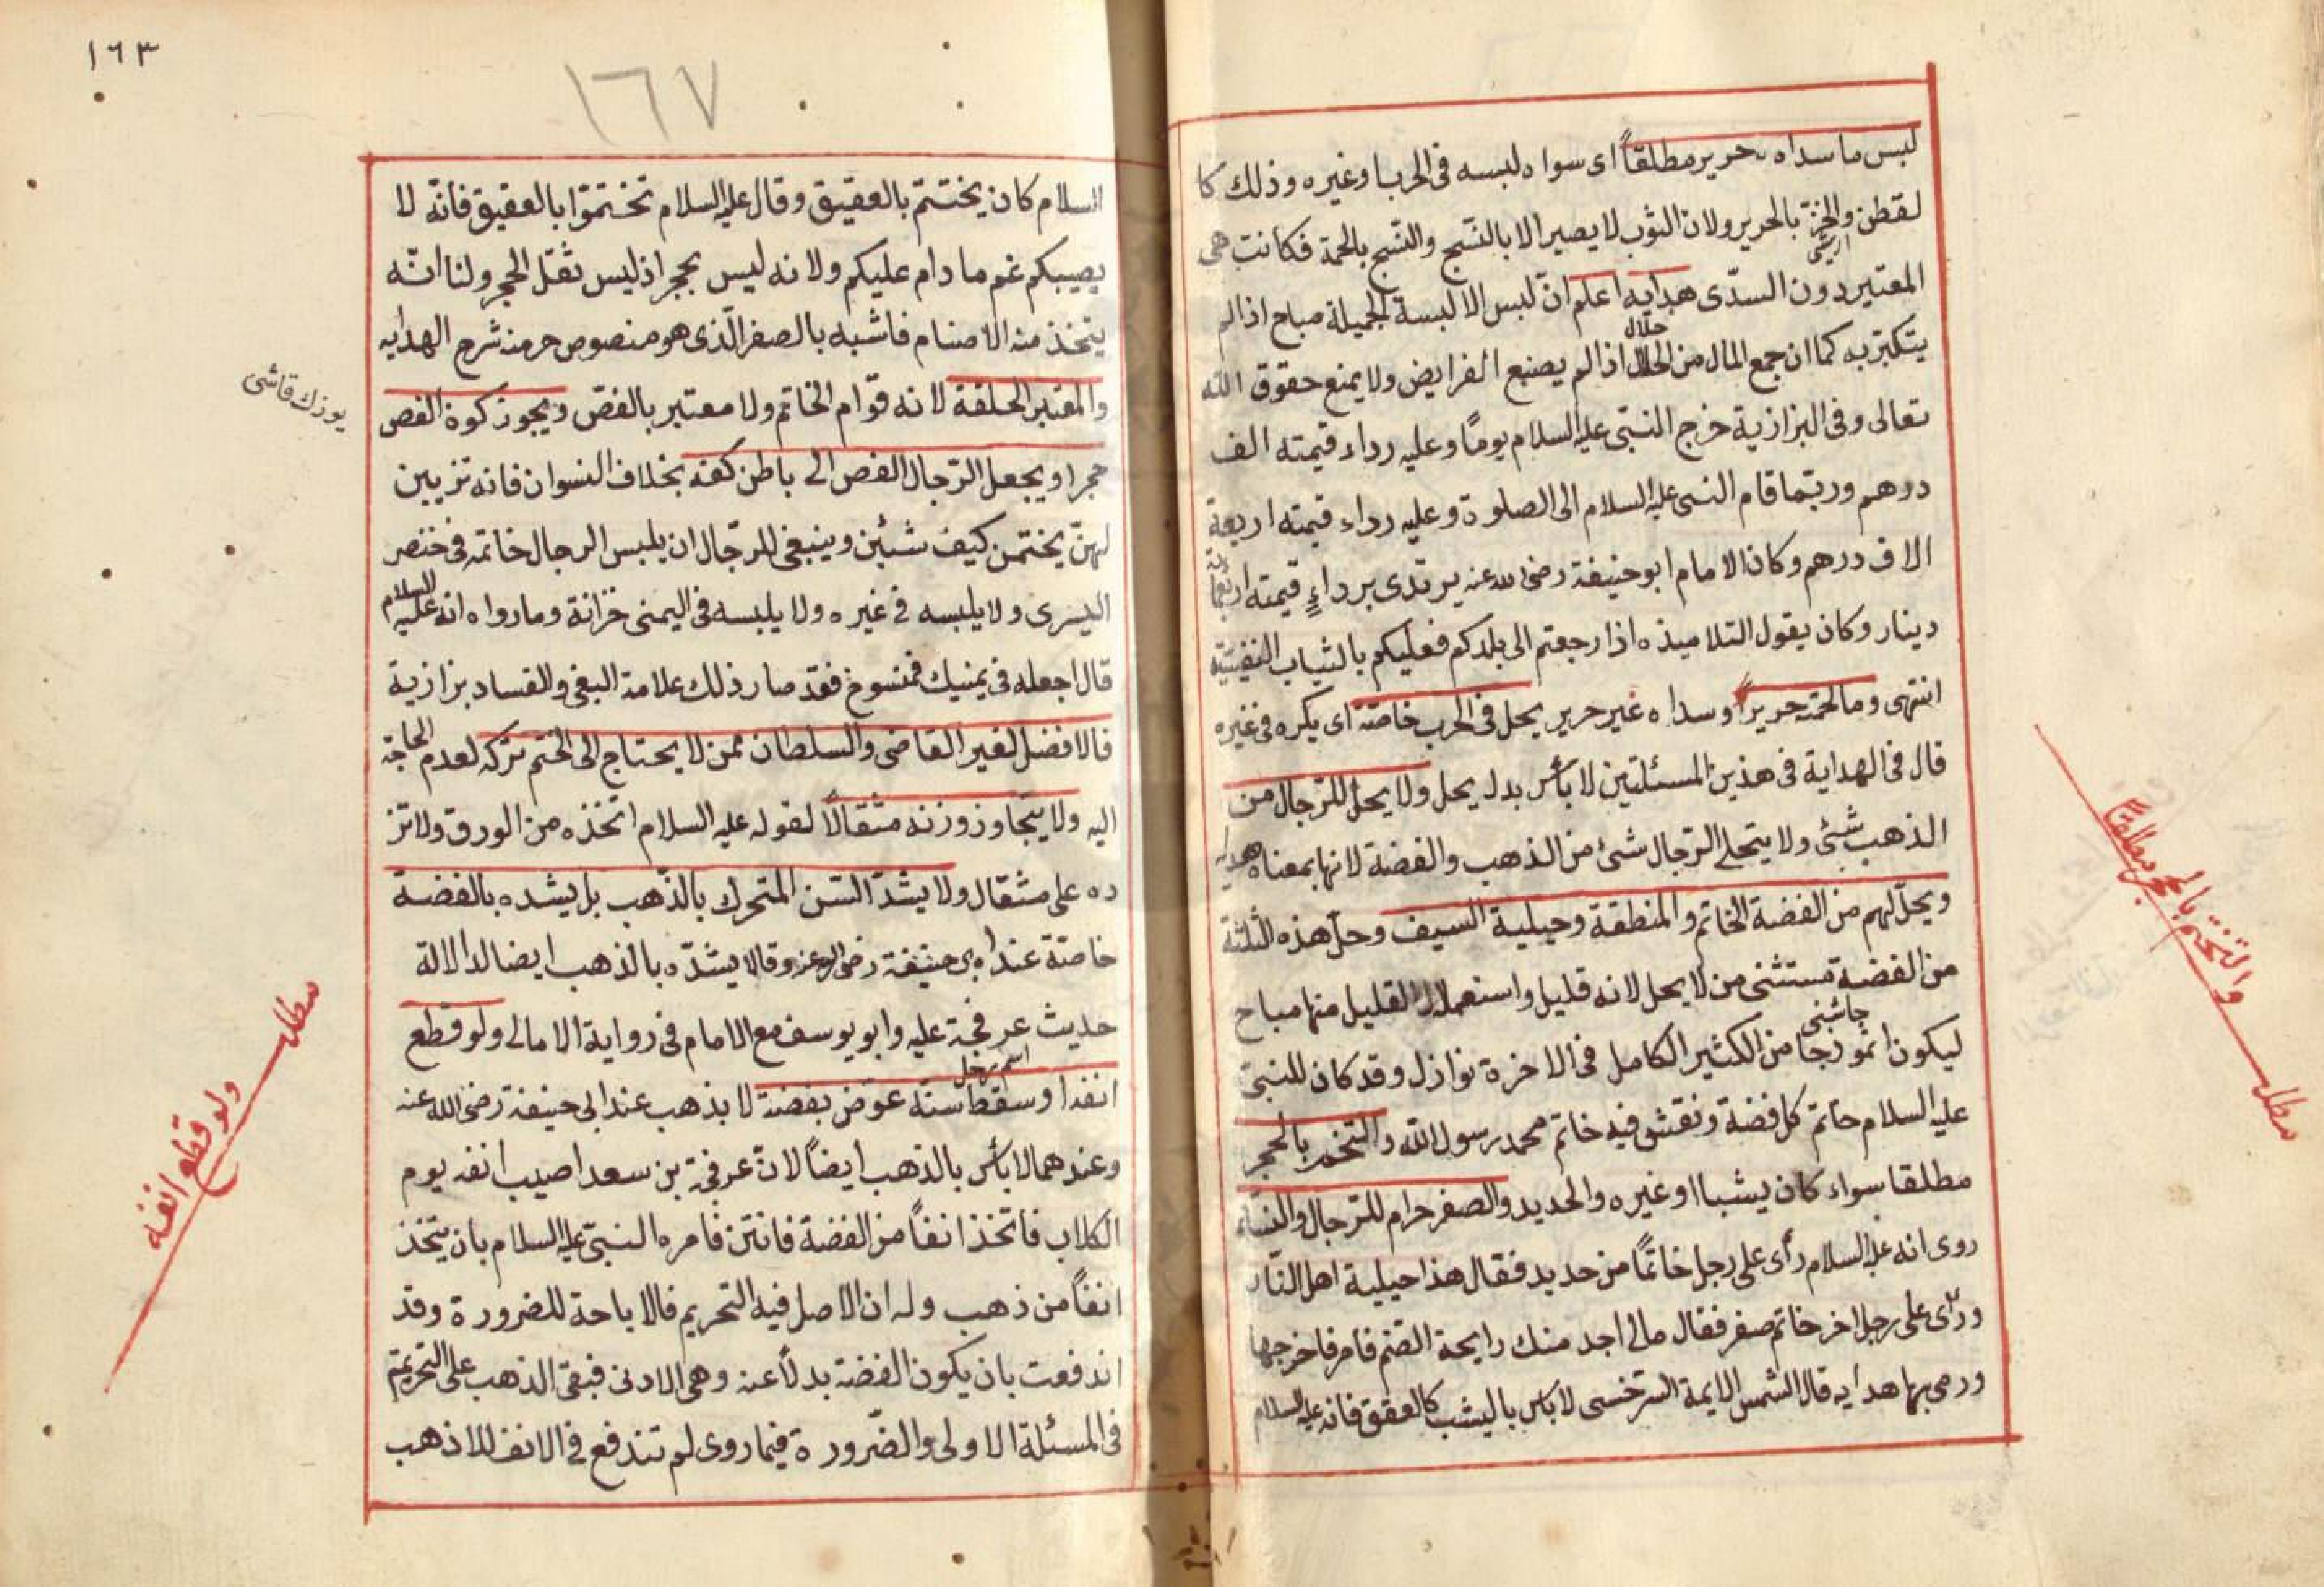 لبس ما سداه حرير مطلقاً اى سواء لبسه فى الحرب او غيره وذلك كا
لقطن والخزّ بالحرير ولان الثوب لا يصير الا بالنسج والنسج بالحمة فكانت هى
المعتبر دون السدّى هدايه اعلم انّ لبس الالبسة الجميلة مباح اذا لم
حلال
يتكبّر به كما ان جمع المال من الحلال اذا لم يضيع الفرايض ولا يمنع حقوق الله
تعالى وفى البزازية خرج النبىّ عليه السلام يوماً وعليه رداء قيمته الف
درهم وربّما قام النبى عليه السلام الى الصلوة وعليه رداء قيمته اربعة
الاف درهم وكان الامام ابو حنيفة رضى الله عنه يرتدى برداءٍ قيمته اربعمائة
دينار وكان يقول التلاميذه اذا رجعتم الى بلدكم فعليكم بالثياب النفيسة
انتهى وما لحمته حريراً وسداه غير حرير يحل فى الحرب خاصّة اى يكره فى غيره
قال فى الهداية فى هذين المسئلتين لا بأس بدل يحل ولا يحلّ للرّجال من
الذهب شئ ولا يتحلى الرّجال شئ من الذهب والفضة لانها بمعناه هدايه
ويحلّ لهم من الفضة الخاتم والمنطقة وحيلية السيف وحلّ هذه الثلثة
من الفضة مستثنى من لا يحل لانه قليل واستعمال القليل منها مباح
چاشنى
ليكون انموذجا من الكثير الكامل فى الاخرة نوازل وقد كان للنبىّ
عليه السلام خاتم كل فضة ونقش فيه خاتم محمد رسول الله والتختم بالحجر
مطلقا سواء كان يشبا او غيره والحديد والصفر حرام للرّجال والنساء
روى انه عليه السلام رأى على رجل خاتماً من حديد فقال هذا حيلية اهل النّار
ورأى على رجل اخر خاتم صفر فقال مالى اجد منك رايحة الصّنم فامر فاخرجها
ورمى بها هدايه قال الشمس الايمة السّرخسى لا بأس باليشب كالعقيق فانه عليه السلام
والتختم بالحجر مطلقا
مطلب
١٦٣
١٦٧
السلام كان يختتم بالعقيق وقال عليه السلام تختموّا بالعقيق فانّه لا
يصيبكم غم ما دام عليكم ولانه ليس بحجر اذ ليس ثقل الحجر ولنا انّه
يتخذ منه الاصنام فاشبه بالصفر الّذى هو منصوص حرمته شرح الهدايه
والمعتبر الحلقة لانه قوّام الخاتم ولا معتبر بالفصّ ويجوز كون الفص
يوزك قاشى
حجرا ويجعل الرّجال الفص الى باطن كفه بخلاف النسوان فانه تزيين
لهنّ يختمن كيف شئين وينبغى للرّجال ان يلبس الرجال خاتمه فى خنصر
اليسرى ولا يلبسه فى غيره ولا يلبسه فى اليمنى خزانة وما رواه انه عليه السلام
قال اجعله فى يمنيك فمنسوخ فقد صار ذلك علامة البغى والفساد بزازية
فالافضل لغير القاضى والسلطان ممّن لا يحتاج الى الختم تركه لعدم الحاجة
اليه ولا يتجاوز وزنه مثقالاً لقوله عليه السلام اتخذه من الورق ولا تز
ده على مثقال ولا يشدّ السّن المتحرك بالذّهب بل يشده بالفضة
خاصّة عند ابى حنيفة رضى الله عنه وقالا يشدّه بالذهب ايضا لدلالة
حديث عرفجة عليه وابو يوسف مع الامام فى رواية الامالى ولو قطع
اسم رجل
انفه او سقط سنه عوّض بفضة لا بذهب عند ابى حنيفة رضى الله عنه
وعندهما لا بأس بالذهب ايضاً لانّ عرفجة بن سعد اصيب انفه يوم
الكلاب فاتخذ انفاً من الفضة فانتن فامره النبىّ عليه السلام بان يتخذ
انفاً من ذهب وله ان الاصل فيه التحريم فالاباحة للضرورة وقد
اندفعت بان يكون الفضة بدلاً عنه وهى الادنى فبقى الذهب على التحريم
فى المسئلة الاولى والضّرورة فيما روى لم تندفع فى الانف للاذهب
مطلب
ولو قطع انفه